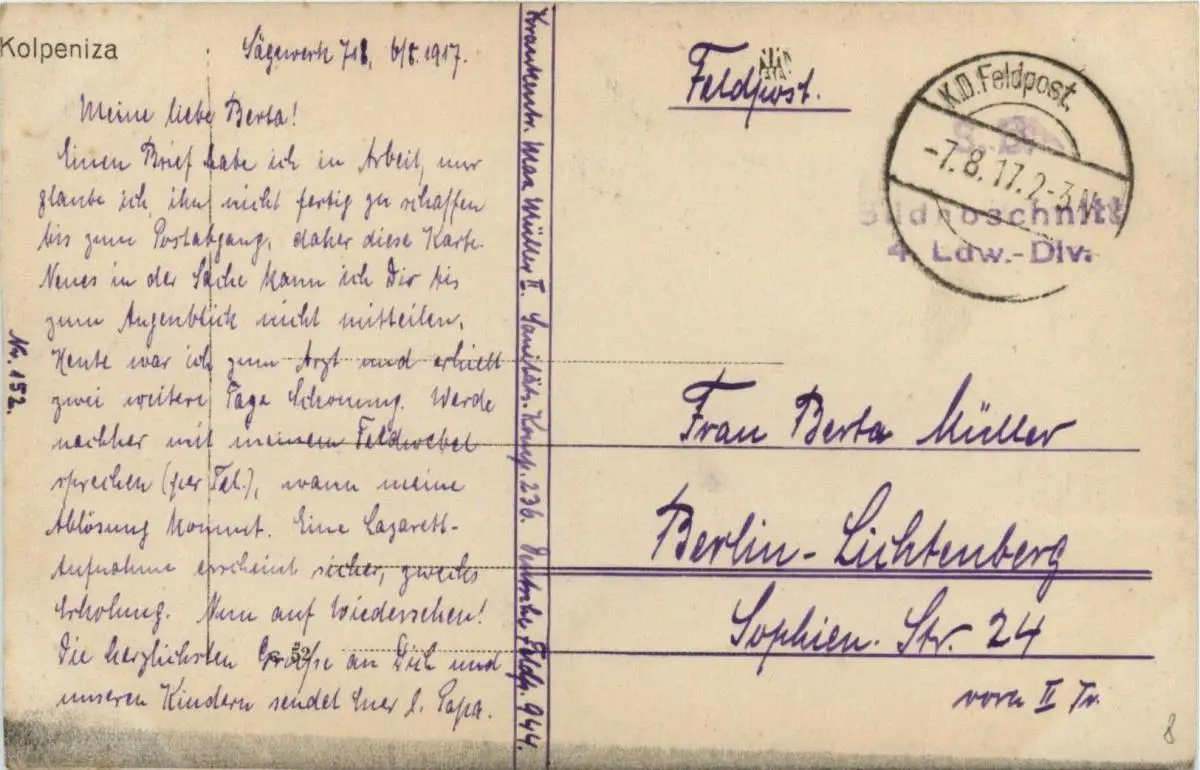 Kolpeniza
Sägewerk 718, 6/8. 1917.
Meine liebe Berta!
Einen Brief habe ich in Arbeit, nur
glaube ich, ihn nicht fertig zu schaffen
bis zum Postabgang, daher diese Karte.
Neues in der Sache kann ich Dir bis
zum Augenblick nicht mitteilen.
Heute war ich zum Arzt und erhielt
zwei weitere Tage Schonung. Werde
nachher mit meinem Feldwebel
sprechen (per Tel.), wann meine
Ablösung kommt. Eine Lazarett-
Aufnahme erscheint sicher, zwecks
Erholung. Nun auf Wiedersehen!
Die herzlichsten Grüße an Dich und
unseren Kindern sendet Euer l. Papa.
Nr. 152.
Krankentr. Max Müller II. Sanitäts-Komp. 236. Deutsche Feldp. 944.
Feldpost.
K.D. Feldpost.
-7.8.17. 2-3 N
S. B.
4. Ldw.-Div.
Frau Berta Müller
Berlin-Lichtenberg
Sophien-Str. 24
vorn II Tr.
8